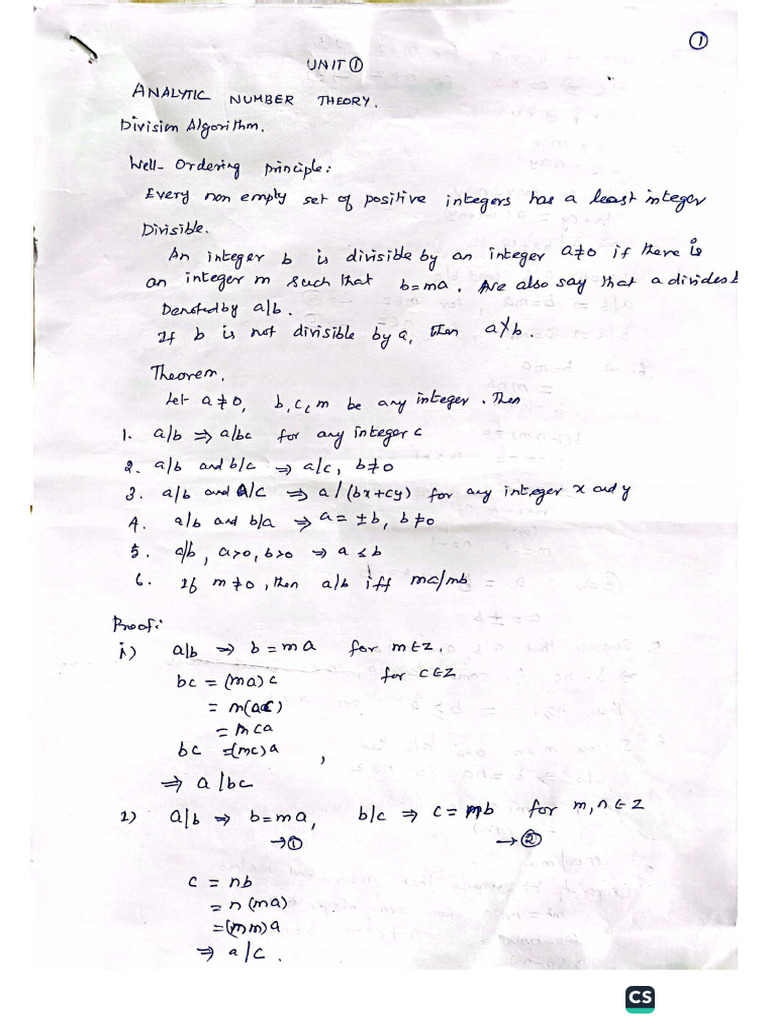 ①
UNIT ①
ANALYTIC NUMBER THEORY.
Division Algorithm.
Well-Ordering principle:
Every non empty set of positive integers has a least integer
Divisible.
An integer b is divisible by an integer a≠0 if there is
an integer m such that b=ma. We also say that a divides b
Denoted by a|b.
If b is not divisible by a, then a∤b.
Theorem.
Let a≠0, b, c, m be any integer. Then
1. a/b ⇒ a/bc for any integer c
2. a/b and b/c ⇒ a/c, b≠0
3. a/b and a/c ⇒ a/(bx+cy) for any integer x and y
4. a/b and b/a ⇒ a=±b, b≠0
5. a/b, a>0, b>0 ⇒ a≤b
6. If m≠0, then a/b iff ma/mb
Proof:
i) a|b ⇒ b=ma for m∈Z.
bc = (ma)c for c∈Z
= m(ac)
= mca
bc =(mc)a,
⇒ a/bc
2) a/b ⇒ b=ma, b/c ⇒ c=nb for m,n∈Z
→① →②
c = nb
= n(ma)
=(nm)a
⇒ a/c.
CS